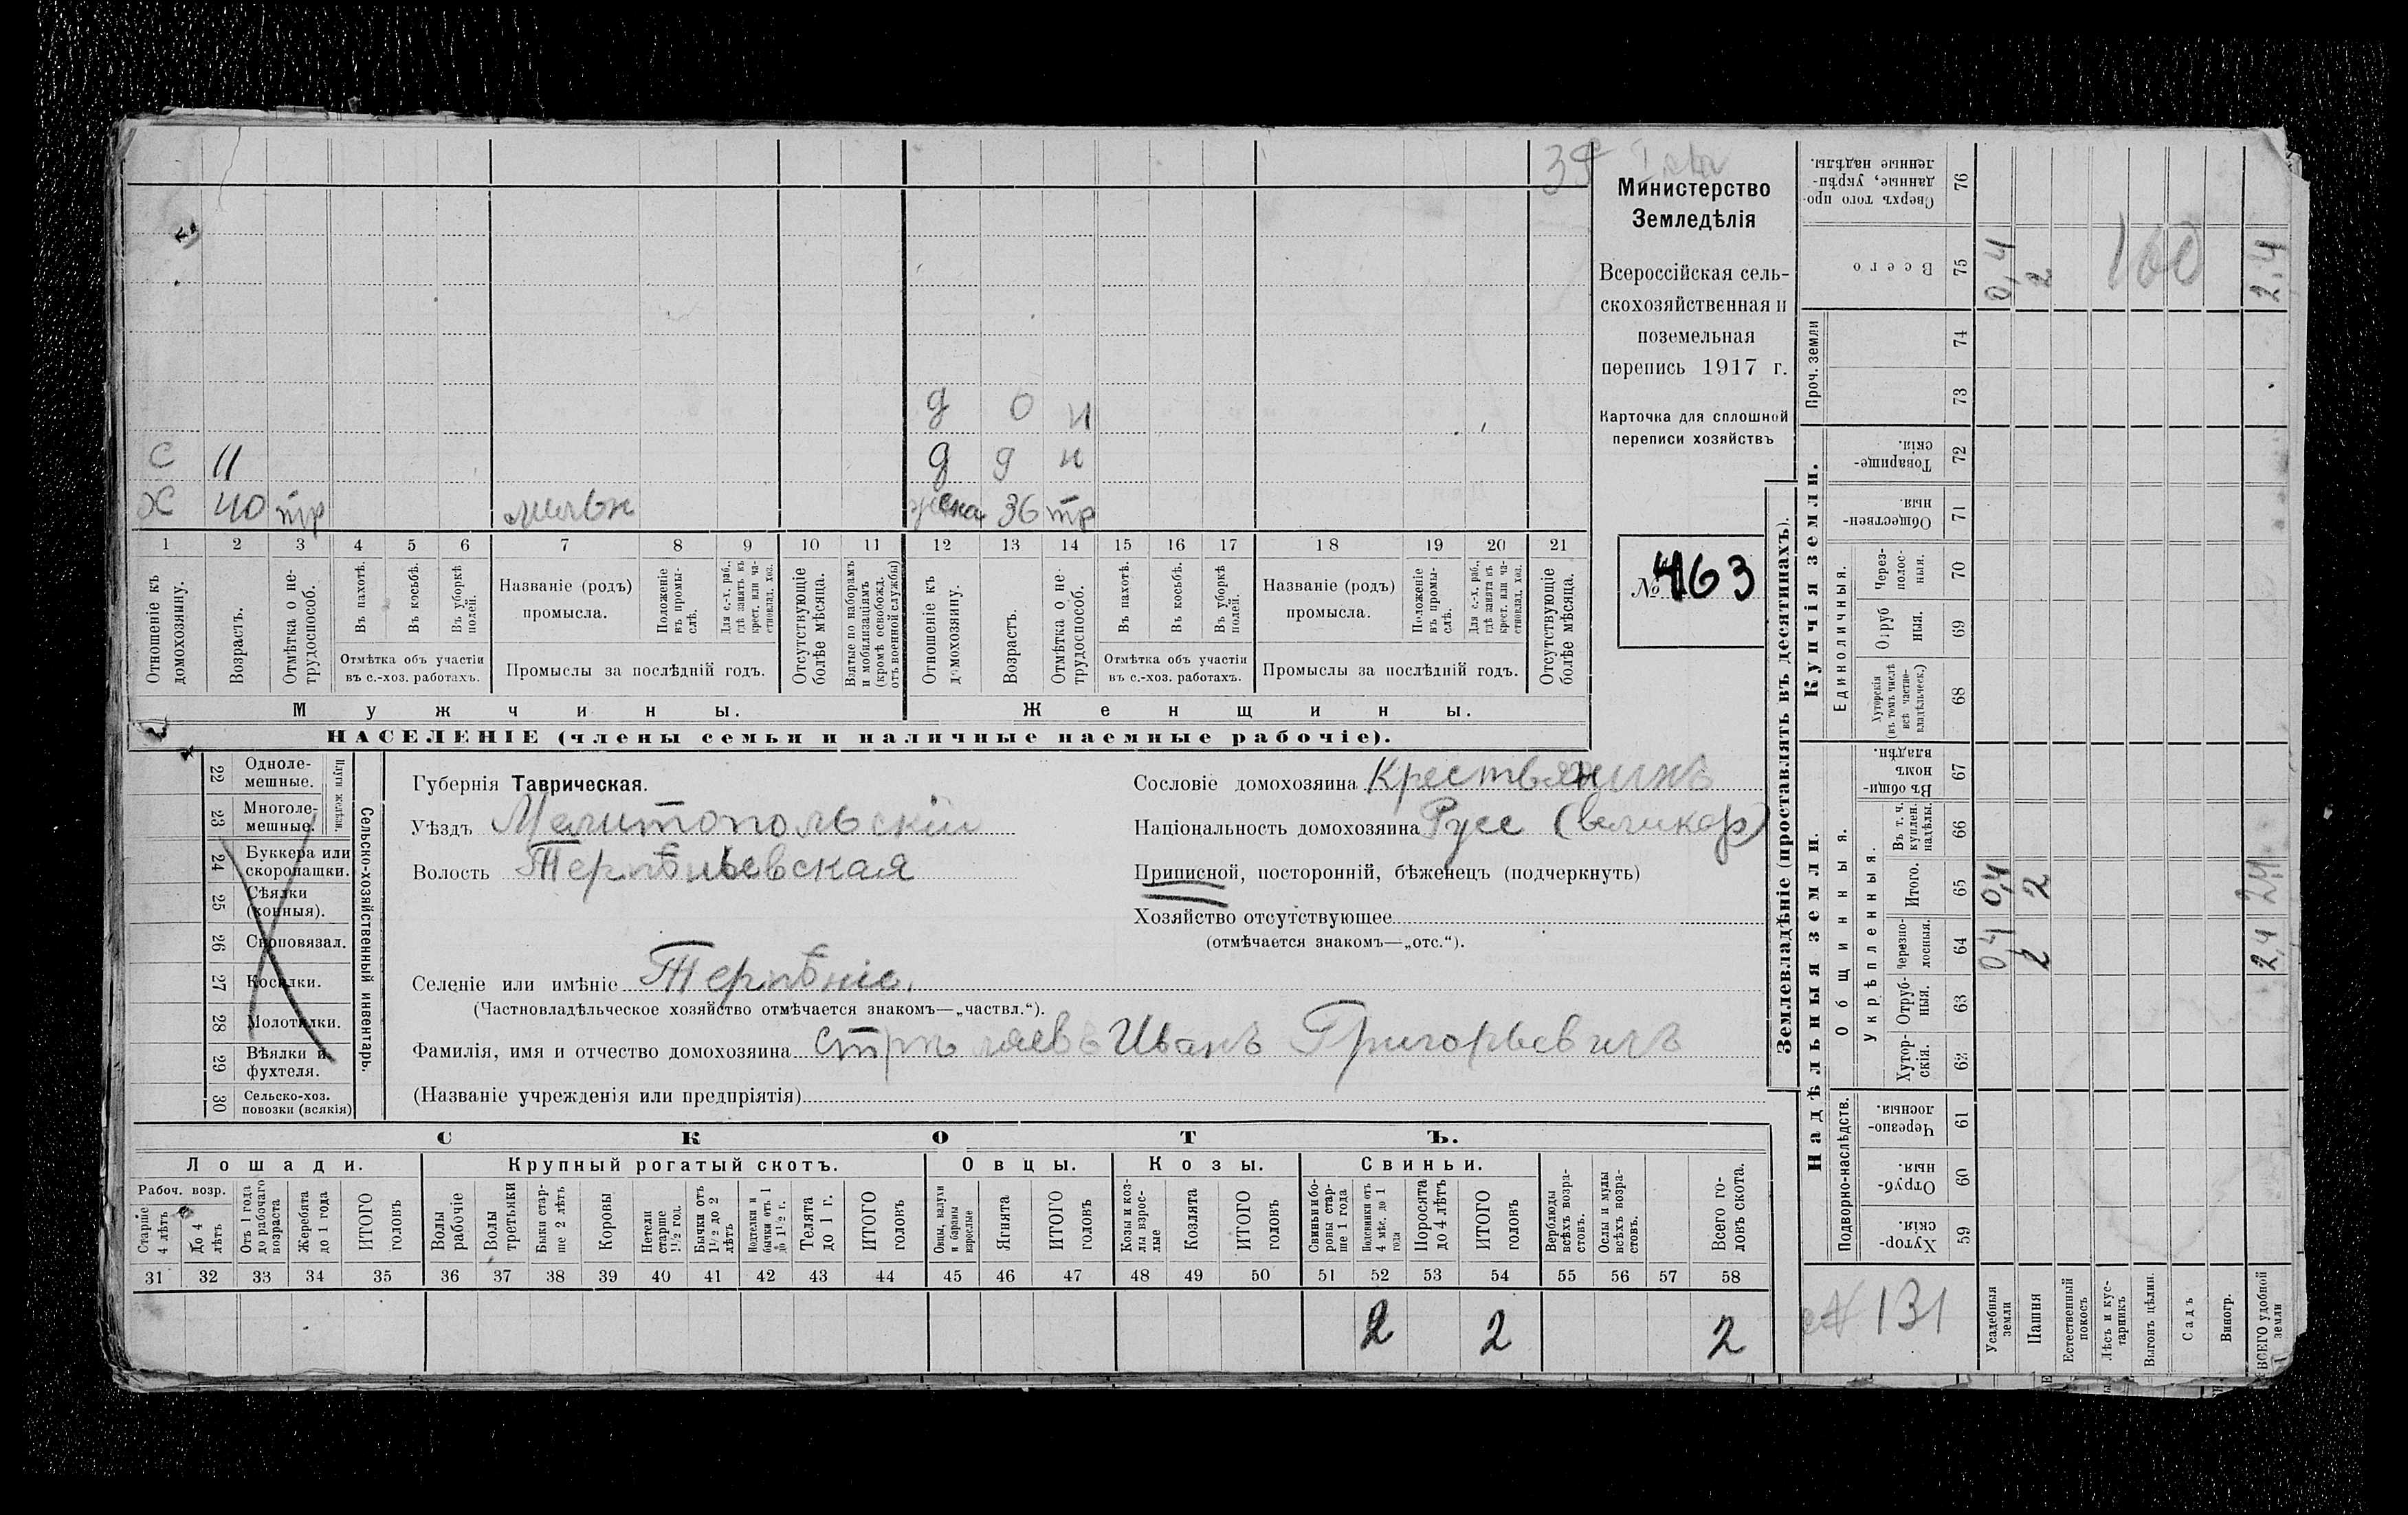 39
Министерство
Земледѣлія
Всероссійская сель-
скохозяйственная и
поземельная
перепись 1917 г.
Карточка для сплошной
переписи хозяйствъ
№ 463
д 0 н
с 11 д 9 н
Х 40 тр жена 36 тр
1 2 3 4 5 6 7 8 9 10 11 12 13 14 15 16 17 18 19 20 21
Отношеніе къ домохозяину.
Возрастъ.
Отмѣтка о не-трудоспособ.
Въ пахотѣ.
Въ косьбѣ.
Въ уборкѣ полей.
Отмѣтка объ участіи
въ с.-хоз. работахъ.
Названіе (родъ)
промысла.
Положеніе въ промы-слѣ.
Для с.-х. раб., гдѣ занятъ въ крест. или ча-стновлад. хоз.
Промыслы за послѣдній годъ.
Отсутствующіе болѣе мѣсяца.
Взятые по наборамъ и мобилизаціямъ (кромѣ освобожд. отъ военной службы)
Отношеніе къ домохозяину.
Возрастъ.
Отмѣтка о не-трудоспособ.
Въ пахотѣ.
Въ косьбѣ.
Въ уборкѣ полей.
Отмѣтка объ участіи
въ с.-хоз. работахъ.
Названіе (родъ)
промысла.
Положеніе въ промы-слѣ.
Для с.-х. раб., гдѣ занята въ крест. или ча-стновлад. хоз.
Промыслы за послѣдній годъ.
Отсутствующіе болѣе мѣсяца.
Мужчины. Женщины.
НАСЕЛЕНІЕ (члены семьи и наличные наемные рабочіе).
22 Одноле-мешные.
23 Многоле-мешные.
Плуги желѣзн.
24 Буккера или скоропашки.
25 Сѣялки (конныя).
26 Сноповязал.
27 Косилки.
28 Молотилки.
29 Вѣялки и фухтеля.
30 Сельско-хоз. повозки (всякія)
Сельско-хозяйственный инвентарь.
Губернія Таврическая.
Уѣздъ Мелитопольскій
Волость Терпѣньевская
Селеніе или имѣніе Терпѣніе.
(Частновладѣльческое хозяйство отмѣчается знакомъ—„частвл.“).
Сословіе домохозяина Крестьянинъ
Національность домохозяина Русс (великор)
Приписной, посторонній, бѣженецъ (подчеркнуть)
Хозяйство отсутствующее
(отмѣчается знакомъ—„отс.“).
Фамилія, имя и отчество домохозяина Иванъ Григорьевичъ
(Названіе учрежденія или предпріятія)
СКОТЪ.
Лошади. Крупный рогатый скотъ. Овцы. Козы. Свиньи.
Рабоч. возр.
Старше 4 лѣтъ
До 4 лѣтъ
Отъ 1 года до рабочаго возраста
Жеребята до 1 года
ИТОГО головъ
Волы рабочіе
Волы третьяки
Быки стар-ше 2 лѣтъ
Коровы
Нетели старше 1½ год.
Бычки отъ 1½ до 2 лѣтъ
Подтелки и бычки отъ 1 до 1½ г.
Телята до 1 г.
ИТОГО головъ
Овцы, валухи и бараны взрослые
Ягнята
ИТОГО головъ
Козы и коз-лы взрос-лые
Козлята
ИТОГО головъ
Свиньи и бо-ровы стар-ше 1 года
Подсвинки отъ 4 мѣс. до 1 года
Поросята до 4 лѣтъ
ИТОГО головъ
Верблюды всѣхъ возра-стовъ.
Ослы и мулы всѣхъ возра-стовъ.
Всего го-ловъ скота.
31 32 33 34 35 36 37 38 39 40 41 42 43 44 45 46 47 48 49 50 51 52 53 54 55 56 57 58
2 2 2
Землевладѣніе (проставлять въ десятинахъ).
Надѣльныя земли. Купчія земли. Проч. земли
Подворно-наслѣдств.
Общинныя.
Укрѣпленныя.
Единоличныя.
Хутор-скія. 59
Отруб-ныя. 60
Черезпо-лосныя. 61
Хутор-скія. 62
Отруб-ныя. 63
Черезпо-лосныя. 64
Итого. 65
Въ т. ч. куплен. надѣлы. 66
Въ общи-номъ владѣн. 67
Хуторскія (въ томъ числѣ всѣ частно-владѣльческ.) 68
Отруб ныя. 69
Через-полос-ныя. 70
Обществен-ныя. 71
Товарище-скія. 72
73
74
Всего 75
Сверхъ того про-данные, укрѣп-ленные надѣлы. 76
№ 131
Усадебныя земли 0,4 0,4 0,4
Пашня 2 2 2
Естественный покосъ
Лѣсъ и кус-тарникъ
Выгонъ цѣлин.
Садъ
Виногр.
ВСЕГО удобной земли 2,4 2,4 2,4
160